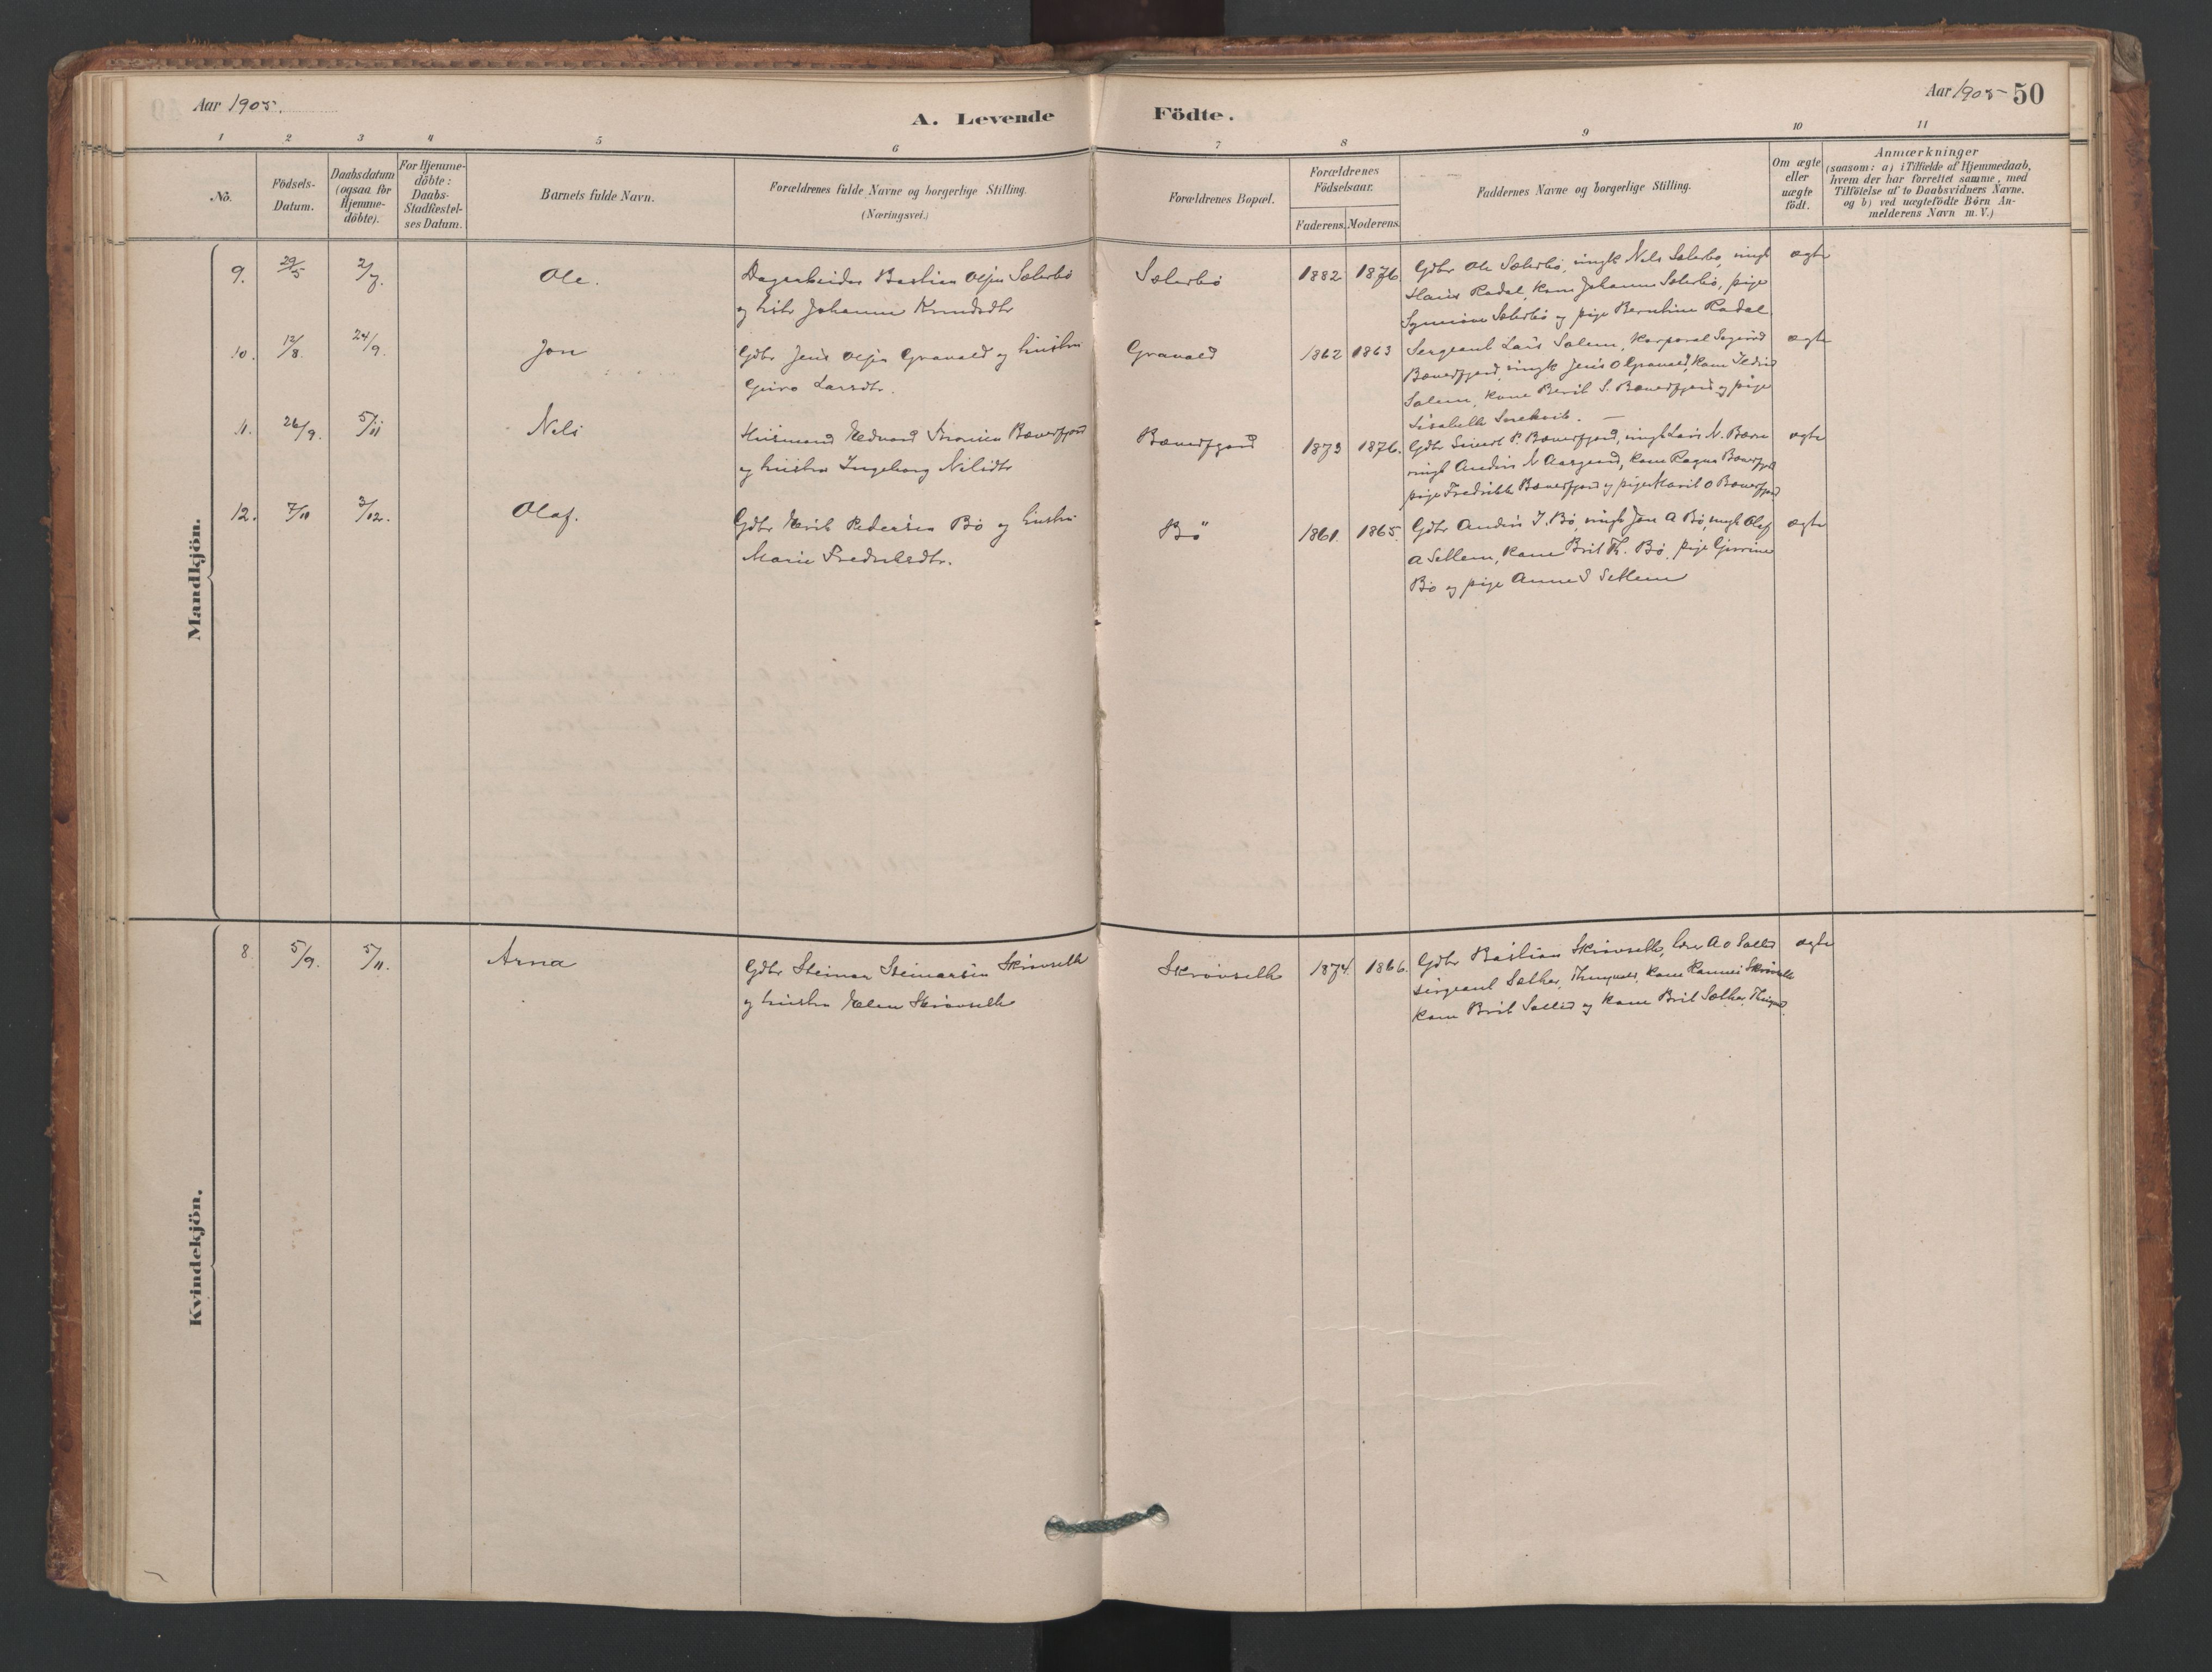 Aar 1905.
A. Levende
Födte.
Aar 1905 50
1 2 3 4 5 6 7 8 9 10 11
No.
Födsels-
Datum.
Daabsdatum
(ogsaa for
Hjemme-
döbte).
For Hjemme-
döbte:
Daabs-
Stadfæstel-
ses Datum.
Barnets fulde Navn.
Forældrenes fulde Navne og borgerlige Stilling.
(Næringsvei.)
Forældrenes Bopæl.
Forældrenes
Födselsaar.
Faderens. Moderens.
Faddernes Navne og borgerlige Stilling.
Om ægte
eller
uægte
födt.
Anmærkninger
(saasom: a) i Tilfælde af Hjemmedaab,
hvem der har forrettet samme, med
Tilföielse af to Daabsvidners Navne.
og b) ved uægtefödte Börn An-
melderens Navn m. V.)
Mandkjön.
9. 29/5 2/7. Ole.
Dagarbeider Bastian Olsen Sæterbö
og hstr Johanne Knudsdtr
Sæterbö 1882 1876
Gdbr Ole Sæterbö, ungk Nels Sæterbö, ungk
Hans Rodal, kone Johanne Sæterbö, pige
Sæterbö og pige Berntine Rodal
ægte
10. 12/8. 24/9. Jon
Gdbr Jens Olsen Granald og hustru
Guro Larsdtr.
Granald 1862 1863
Sergeant Lars Solem, Korporal
Bæverfjord, ungk Jens O Granald, kone
Solem, kone Berit S. Bæverfjord og pige
ægte
11. 26/9. 5/11 Nels
Husmand Edvard Bæverfjord
og hustru Ingeborg Nilsdtr
Bæverfjord 1873 1876.
Gdbr Sivert P. Bæverfjord, ungk Lars N. Bæve
ungk Anders N Aasgaard, kone Ragna Bæverfj
pige Fredrikke Bæverfjord og pige Marit O Bæverfjord
ægte
12. 7/11 3/12. Olaf.
Gdbr Erik Pedersen Bö og hustru
Marie Fredriksdtr.
Bö 1861. 1865.
Gdbr Anders J. Bö, ungk Jon A Bö, ungk Olaf
A Settem, kone Brit Th. Bö, pige
Bö og pige Anne S Settem
ægte
Kvindekjön.
8. 5/9. 5/11. Arna
Gdbr Steinar Steinarsen Skrövseth
og hustru Elen Skrövseth
Skrövseth 1874. 1866.
Gdbr Bastian Skrövseth, A O
sergeant Sæther, kone Skrövseth
kone Brit og kone Brit Sæther,
ægte